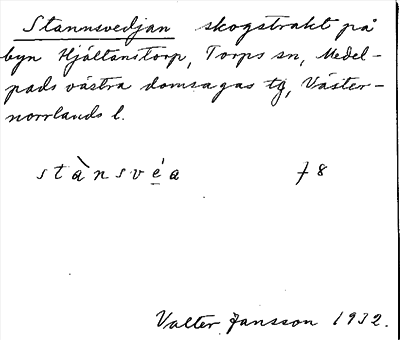 Stannsvedjan skogstrakt på
byn Hjältanstorp, Torps sn, Medel-
pads västra domsagas tg, Väster-
norrlands l.
stànsvéa 78
Valter Jansson 1932.